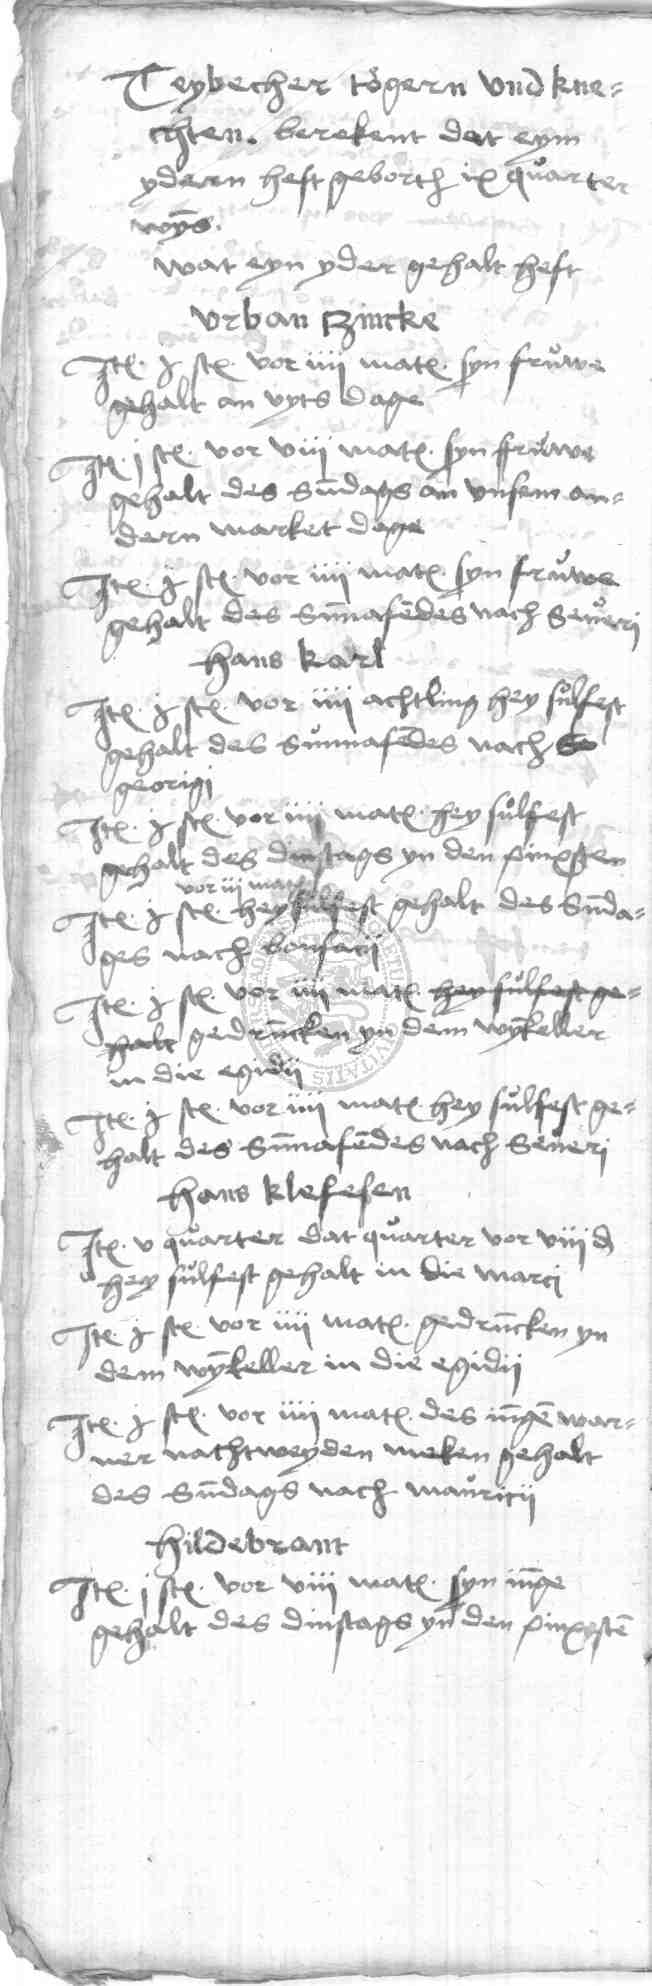 Teybecher togern vnd kne-
chten. berekent dat eym
ydern heft geborth ix quarter
wyns.
wat eyn yder gehalt heft
Vrban Czincke
Itē. ɉ stē. vor iiii matē. syn fruwe
gehalt an vyts dage
Itē. j stē. vor viij matē. syn fruwe
gehalt des sūdags an vnsem an-
dern market dage
Itē. ɉ stē. vor iiii matē. syn fruwe
gehalt des sūnafēdes nach Seueri
Hans Karl
Itē. ɉ stē. vor iiii achtling hey sulfest
gehalt des sunnafēdes nach
georigi
Itē. ɉ stē. vor iiii matē. hey sulfest
gehalt des dinstags yn den pinxsten
vor iij matē
Itē. ɉ stē. hey sulfest gehalt des sūda-
ges nach bonifacii
Itē. ɉ stē. vor iiii matē. hey sulfest ge-
halt gedrūcken yn dem wȳkeller
in die egidii
Itē. ɉ stē. vor iiii matē. hey sulfest ge-
halt des sūnafēdes nach Seueri
Hans Klefesen
Itē. v quarter dat quarter vor viii d
hey sulfest gehalt in die marci
Itē. ɉ stē. vor iiii matē. gedrūcken yn
dem wȳkeller in die egidii
Itē. ɉ stē. vor iiii matē. des iūgē war-
ner nachtweyden meken gehalt
des sūdags nach mauricii
Hildebrant
Itē. j stē. vor viii matē. syn iūge
gehalt des dinstags yn den pinxstē